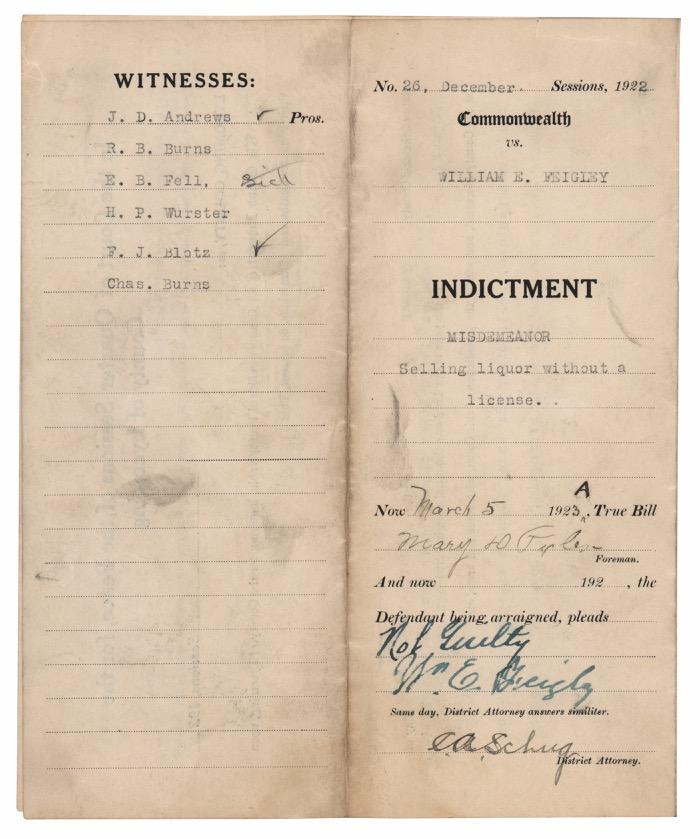 WITNESSES:
J. D. Andrews ✓ Pros.
R. B. Burns
E. B. Fell, Sick
H. P. Wurster
F. J. Blotz ✓
Chas. Burns
No. 26, December. Sessions, 1922
Commonwealth
vs.
WILLIAM E. FEIGLEY
INDICTMENT
MISDEMEANOR
Selling liquor without a
license..
Now March 5 1923, A True Bill
Mary D
Foreman.
And now 192 , the
Defendant being arraigned, pleads
Not Guilty
Wm E Feigley
Same day, District Attorney answers similiter.
C A Schug
District Attorney.